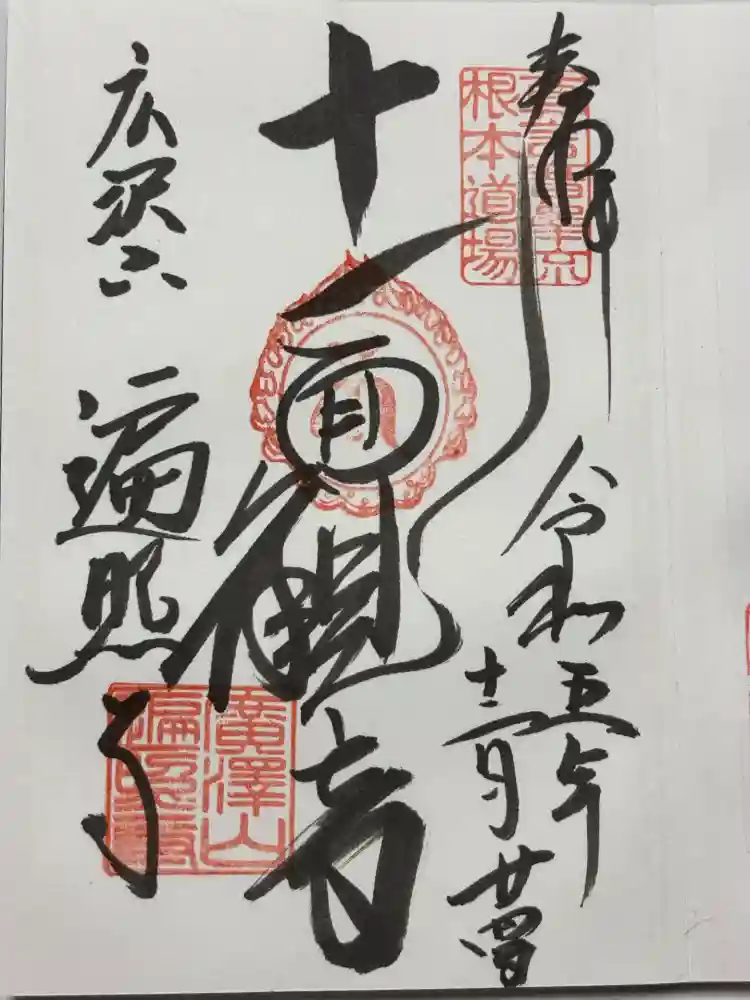 奉拝
根本道場
令和五年
十二月
十一面観音
広沢山
遍照寺
廣澤山
遍照寺